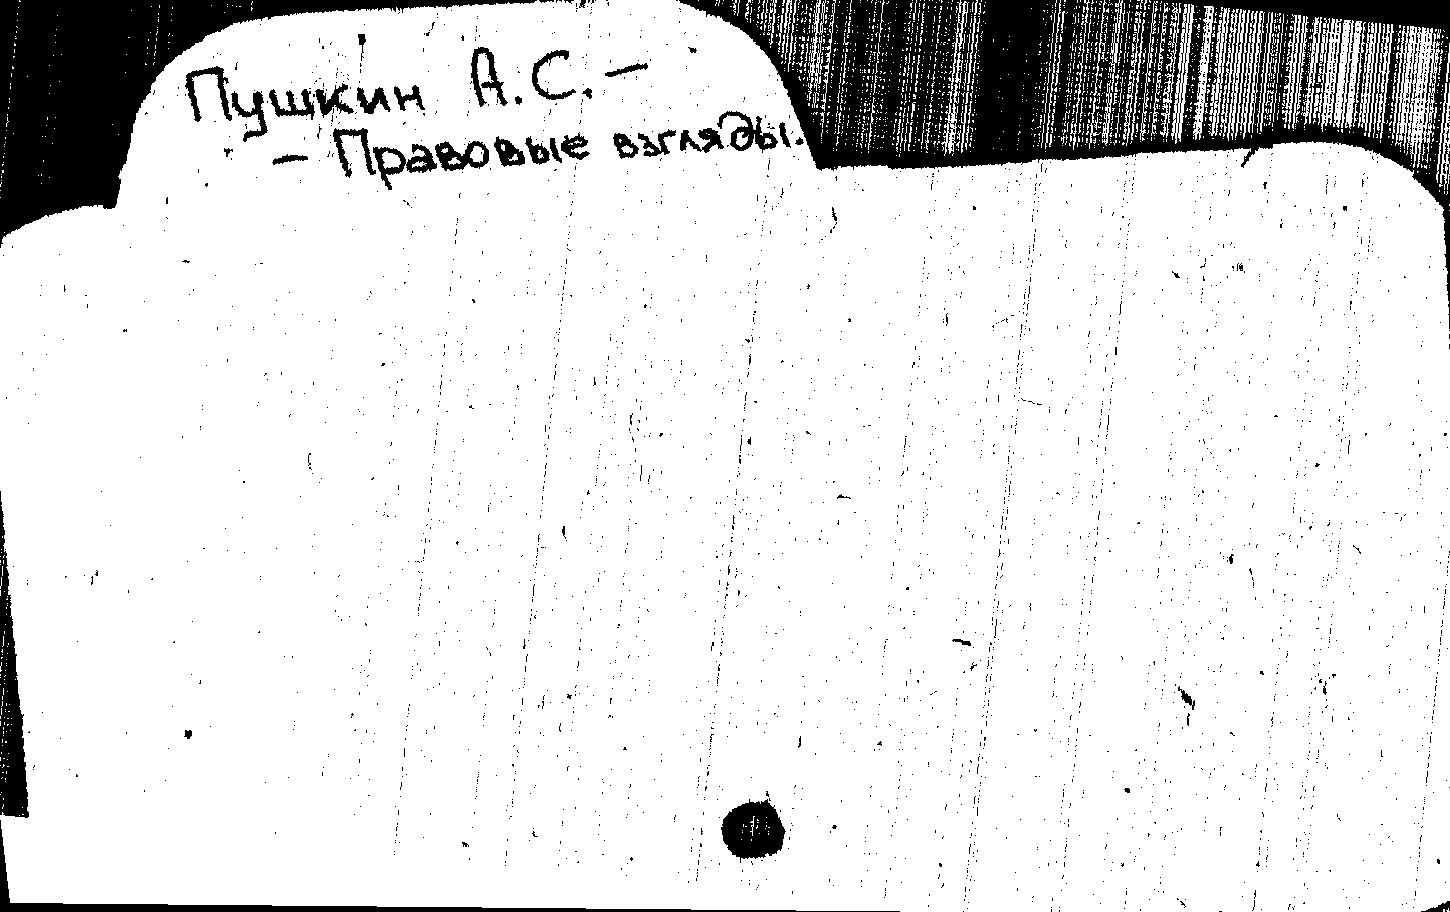 Пушкин А.С. –
– Правовые взгляды.